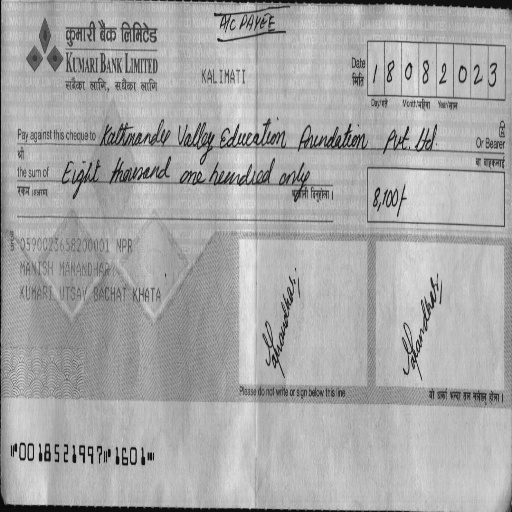 A/C PAYEE
कुमारी बैंक लिमिटेड
KUMARI BANK LIMITED
सबैका लागि, सधैंका लागि
KALIMATI
Date 18082023
मिति
Day/गते Month/महिना Year/साल
Pay against this cheque to Kathmandu Valley Education Foundation Pvt. Ltd.
श्री
Or Bearer
वा वाहकलाई
the sum of Eight thousand one hundred only
रकम
8,100/-
0590025658200001 NPR
MANISH MANANDHAR
KUMARI UTSAV BACHAT KHATA
Manandhar. Manandhar.
Please do not write or sign below this line
⑈0018521997⑈1601⑈